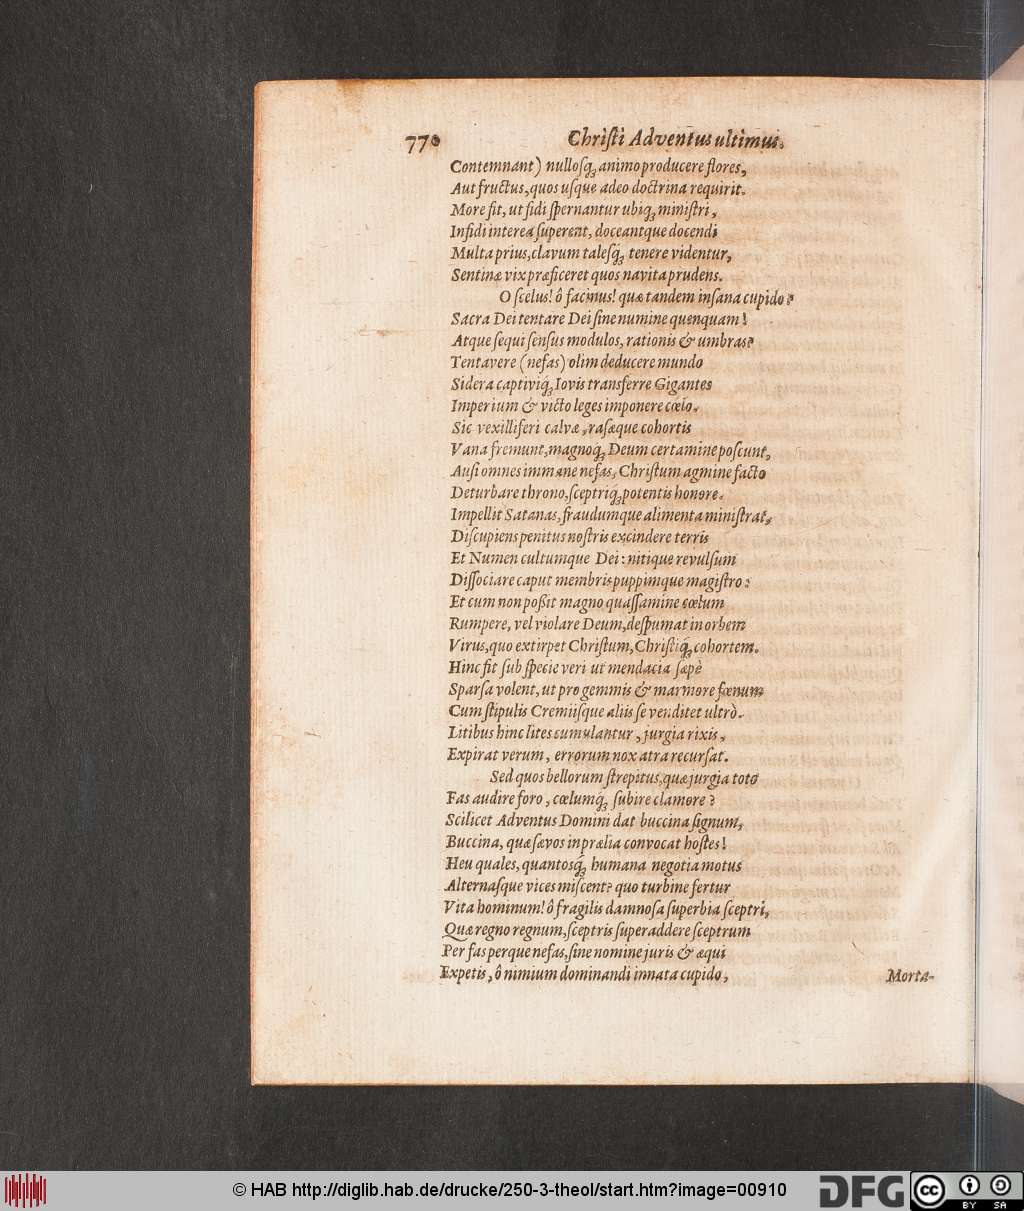 770 Christi Adventus ultimus.
Contemnant) nullosq́; animo producere flores,
Aut fructus, quos usque adeo doctrina requirit.
More fit, ut fidi spernantur ubiq; ministri,
Infidi interea superent, doceantque docendi
Multa prius, clavum talesq́; tenere videntur,
Sentinæ vix præficeret quos navita prudens.
O scelus! ô facinus! quæ tandem insana cupido?
Sacra Dei tentare Dei sine numine quenquam!
Atque sequi sensus modulos, rationis & umbras?
Tentavere (nefas) olim deducere mundo
Sidera captiviq́; Iovis transferre Gigantes
Imperium & victo leges imponere cœlo.
Sic vexilliferi calvæ, rasæque cohortis
Vana fremunt, magnoq́; Deum certamine poscunt,
Ausi omnes immane nefas, Christum agmine facto
Deturbare throno, sceptriq́; potentis honore.
Impellit Satanas, fraudumque alimenta ministrat,
Discupiens penitus nostris excindere terris
Et Numen cultumque Dei: nitique revulsum
Dissociare caput membris puppimque magistro:
Et cum non poßit magno quassamine cœlum
Rumpere, vel violare Deum, despumat in orbem
Virus, quo extirpet Christum, Christiq́; cohortem.
Hinc fit sub specie veri ut mendacia sæpè
Sparsa volent, ut pro gemmis & marmore fœnum
Cum stipulis Cremiisque aliis se venditet ultrò.
Litibus hinc lites cumulantur, jurgia rixis,
Expirat verum, errorum nox atra recursat.
Sed quos bellorum strepitus, quæ jurgia toto
Fas audire foro, cœlumq́; subire clamore?
Scilicet Adventus Domini dat buccina signum,
Buccina, quæ sævos in prælia convocat hostes!
Heu quales, quantosq́; humana negotia motus
Alternasque vices miscent? quo turbine fertur
Vita hominum! ô fragilis damnosa superbia sceptri,
Quæ regno regnum, sceptris superaddere sceptrum
Per fas perque nefas, sine nomine juris & æqui
Expetis, ô nimium dominandi innata cupido,
Morta-
© HAB http://diglib.hab.de/drucke/250-3-theol/start.htm?image=00910
DFG
cc
BY SA